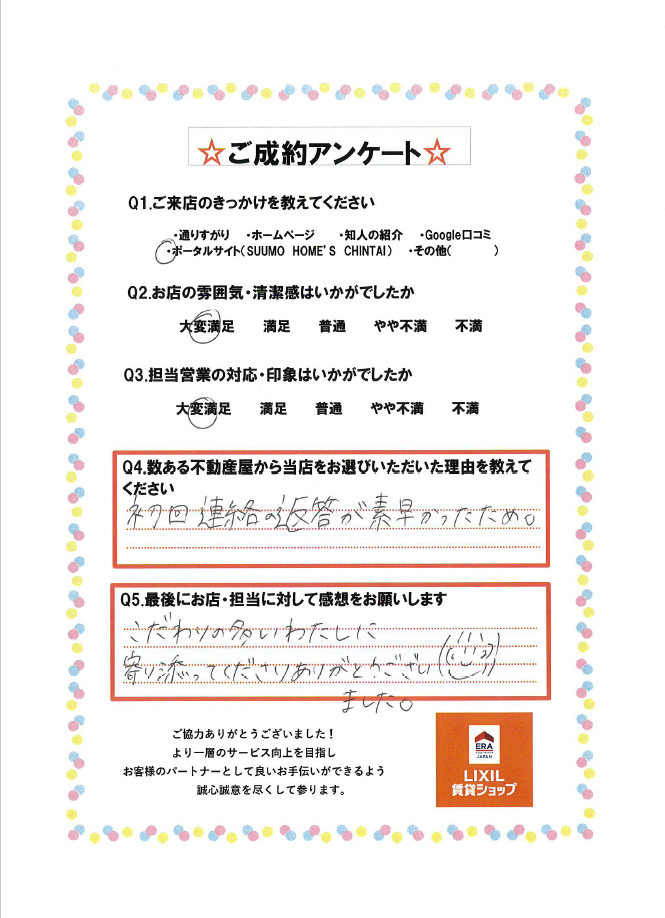 ☆ご成約アンケート☆
Q1.ご来店のきっかけを教えてください
・通りすがり ・ホームページ ・知人の紹介 ・Google口コミ
・ポータルサイト(SUUMO HOME'S CHINTAI) ・その他( )
Q2.お店の雰囲気・清潔感はいかがでしたか
大変満足 満足 普通 やや不満 不満
Q3.担当営業の対応・印象はいかがでしたか
大変満足 満足 普通 やや不満 不満
Q4.数ある不動産屋から当店をお選びいただいた理由を教えて
ください
初回連絡の返答が素早かったため。
Q5.最後にお店・担当に対して感想をお願いします
こだわりの多いわたしに
寄り添ってくださりありがとうござい
ました。
ご協力ありがとうございました！
より一層のサービス向上を目指し
お客様のパートナーとして良いお手伝いができるよう
誠心誠意を尽くして参ります。
ERA
JAPAN
LIXIL
賃貸ショップ